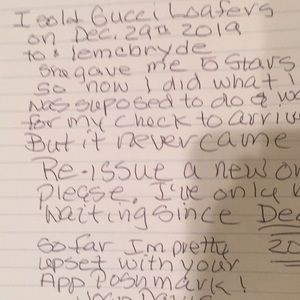 I sold Gucci Loafers
on Dec. 29th 2019
to lemcbryde
she gave me 5 Stars
so now I did what I
was suposed to do &
for my check to arrive
But it never came
Re-issue a new
Please. I've only
Waiting since Dec
So far I'm pretty 20
upset with your
App Poshmark!